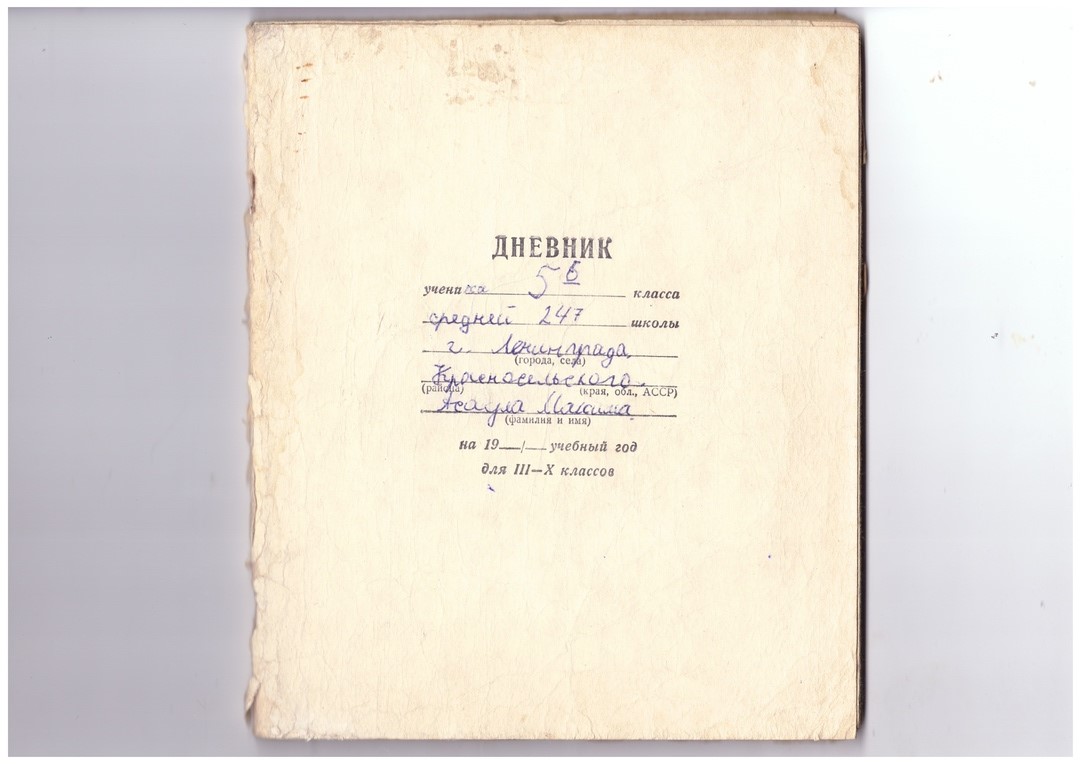 ДНЕВНИК
ученика 5 б класса
средней 247 школы
г. Ленинграда,
(города, села)
Красносельского
(района) (края, обл., АССР)
Асаула Максима
(фамилия и имя)
на 19__/__ учебный год
для III—X классов